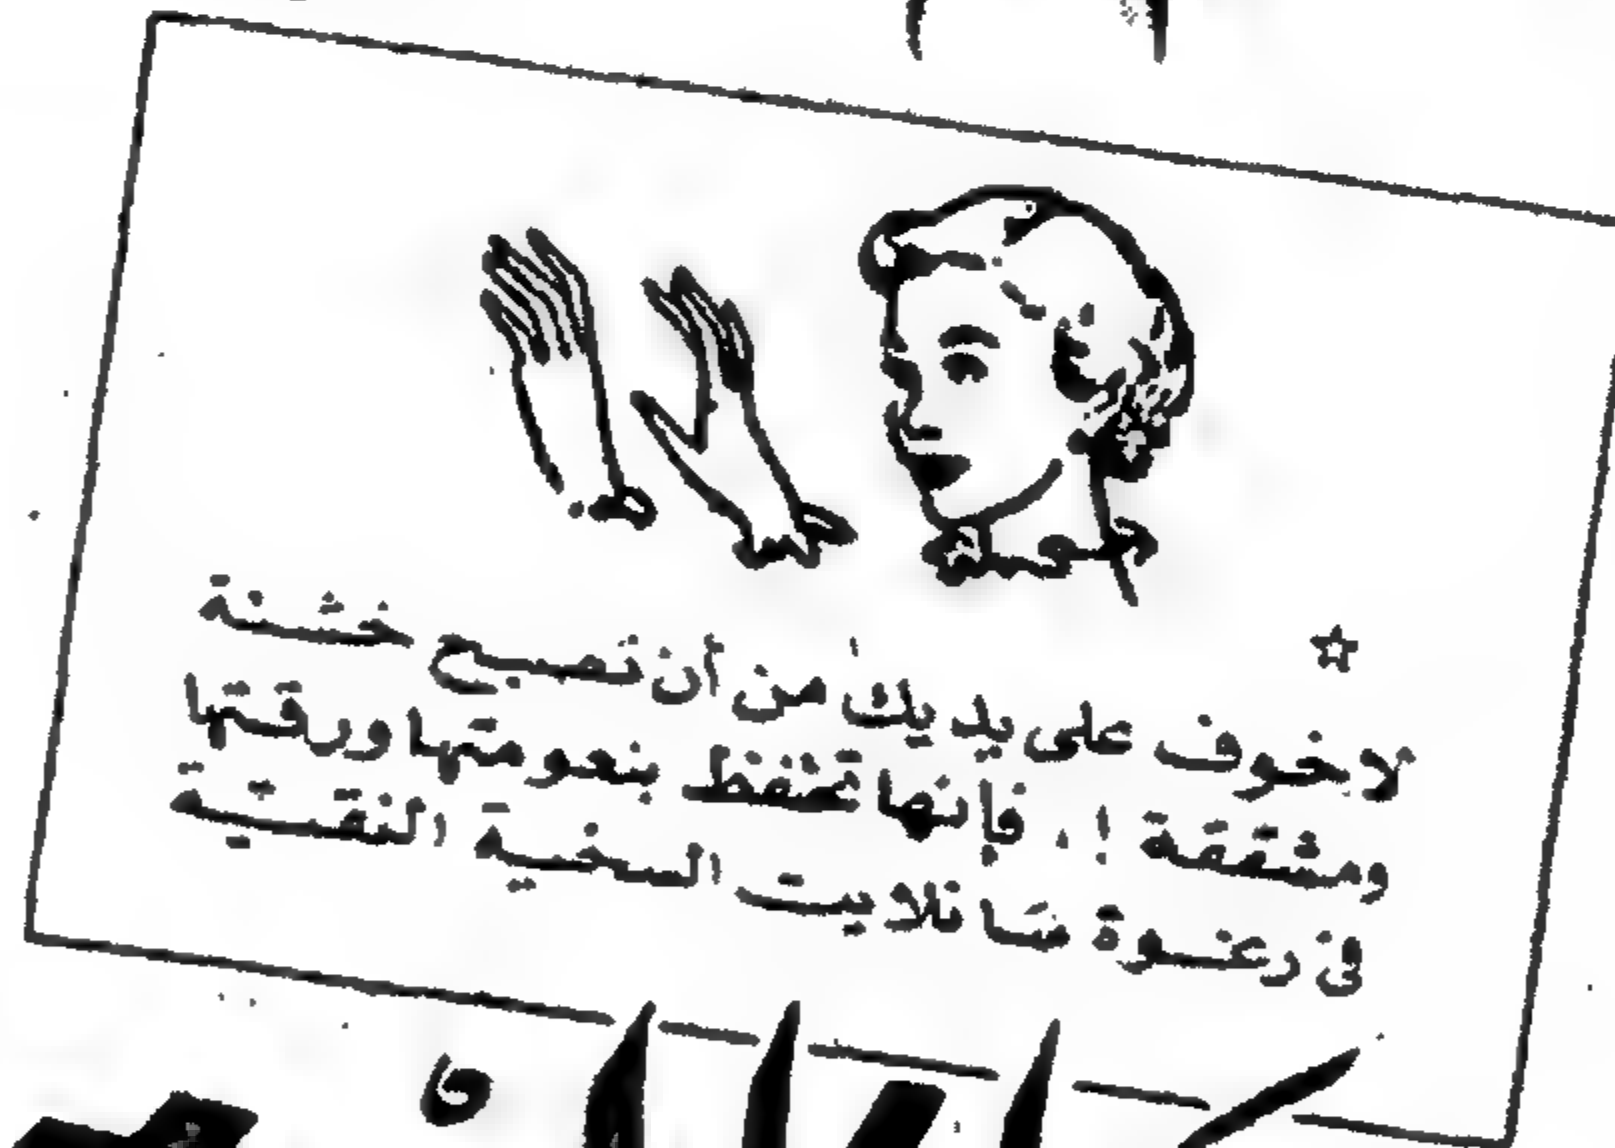 ☆
لا خوف على يديك من أن تصبح خشنة
ومشققة ! . فإنها تحتفظ بنعومتها ورقتها
في رغوة سانلايت السخية النقيّة